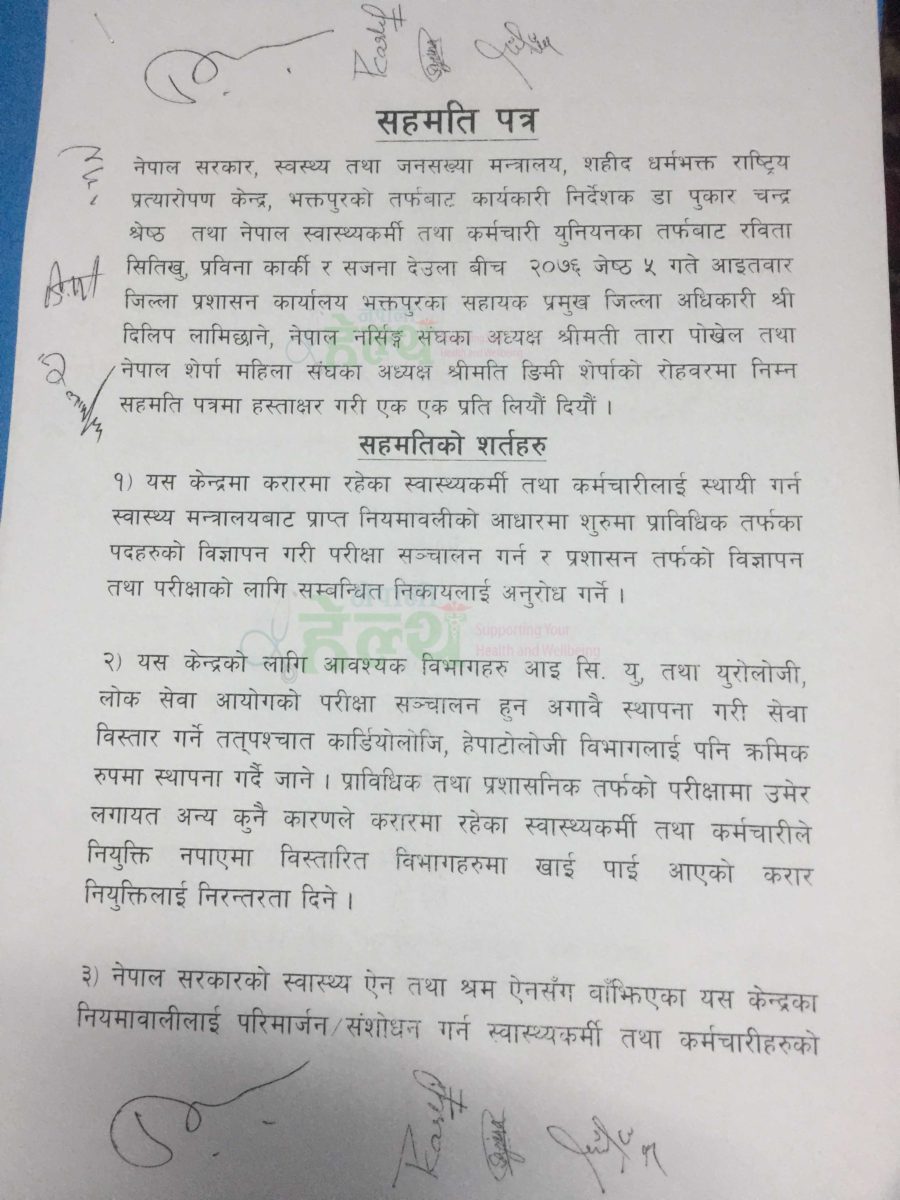 Karki
सहमति पत्र
नेपाल सरकार, स्वस्थ्य तथा जनसख्या मन्त्रालय, शहीद धर्मभक्त राष्ट्रिय
प्रत्यारोपण केन्द्र, भक्तपुरको तर्फबाट कार्यकारी निर्देशक डा पुकार चन्द्र
श्रेष्ठ तथा नेपाल स्वास्थ्यकर्मी तथा कर्मचारी युनियनका तर्फबाट रविता
सितिखु, प्रविना कार्की र सजना देउला बीच २०७६ जेष्ठ ५ गते आइतवार
जिल्ला प्रशासन कार्यालय भक्तपुरका सहायक प्रमुख जिल्ला अधिकारी श्री
दिलिप लामिछाने, नेपाल नर्सिङ्ग संघका अध्यक्ष श्रीमती तारा पोखेल तथा
नेपाल शेर्पा महिला संघका अध्यक्ष श्रीमति डिमी शेर्पाको रोहवरमा निम्न
सहमति पत्रमा हस्ताक्षर गरी एक एक प्रति लियौं दियौं ।
सहमतिको शर्तहरु
१) यस केन्द्रमा करारमा रहेका स्वास्थ्यकर्मी तथा कर्मचारीलाई स्थायी गर्न
स्वास्थ्य मन्त्रालयबाट प्राप्त नियमावलीको आधारमा शुरुमा प्राविधिक तर्फका
पदहरुको विज्ञापन गरी परीक्षा सञ्चालन गर्न र प्रशासन तर्फको विज्ञापन
तथा परीक्षाको लागि सम्बन्धित निकायलाई अनुरोध गर्ने ।
हेल्थ
Supporting Your
Health and Wellbeing
२) यस केन्द्रको लागि आवश्यक विभागहरु आइ सि. यु, तथा युरोलोजी,
लोक सेवा आयोगको परीक्षा सञ्चालन हुन अगावै स्थापना गरी सेवा
विस्तार गर्ने तत्पश्चात कार्डियोलोजि, हेपाटोलोजी विभागलाई पनि क्रमिक
रुपमा स्थापना गर्दै जाने । प्राविधिक तथा प्रशासनिक तर्फको परीक्षामा उमेर
लगायत अन्य कुनै कारणले करारमा रहेका स्वास्थ्यकर्मी तथा कर्मचारीले
नियुक्ति नपाएमा विस्तारित विभागहरुमा खाई पाई आएको करार
नियुक्तिलाई निरन्तरता दिने ।
३) नेपाल सरकारको स्वास्थ्य ऐन तथा श्रम ऐनसँग वाँझिएका यस केन्द्रका
नियमावालीलाई परिमार्जन/संशोधन गर्न स्वास्थ्यकर्मी तथा कर्मचारीहरुको
Karki